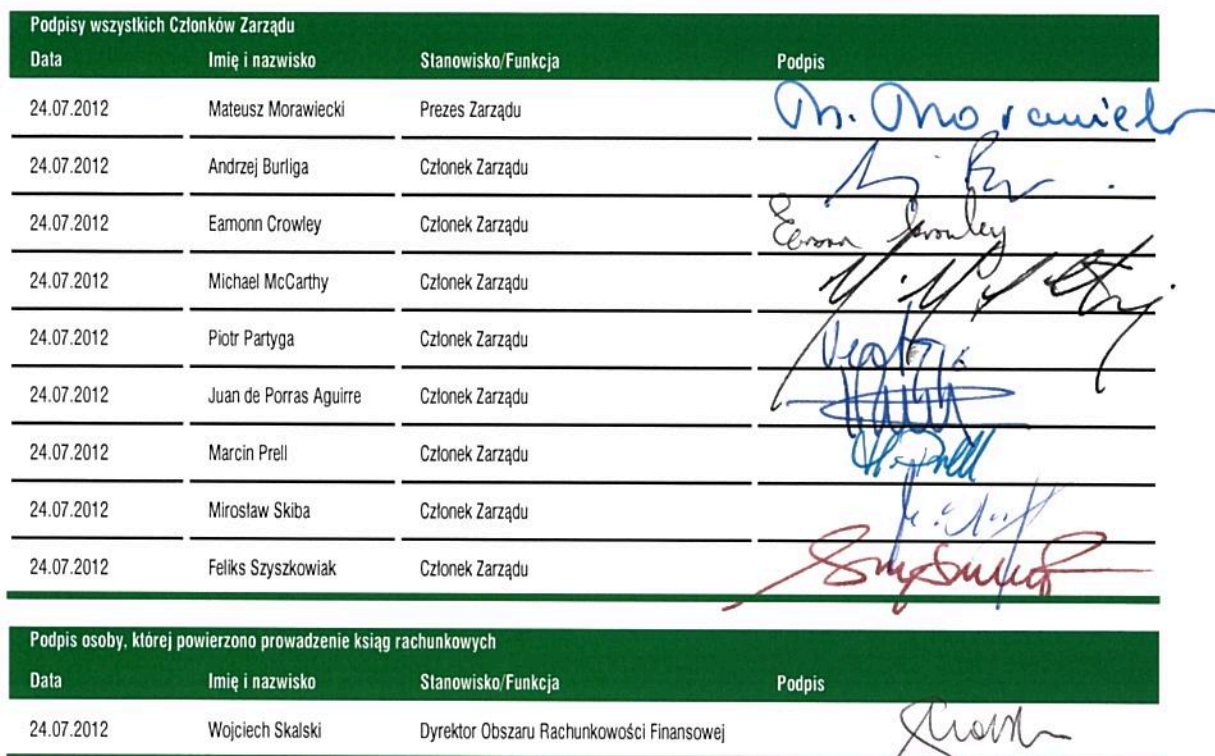 Podpisy wszystkich Członków Zarządu
Data Imię i nazwisko Stanowisko/Funkcja Podpis
24.07.2012 Mateusz Morawiecki Prezes Zarządu
24.07.2012 Andrzej Burliga Członek Zarządu
24.07.2012 Eamonn Crowley Członek Zarządu Eamonn Crowley
24.07.2012 Michael McCarthy Członek Zarządu
24.07.2012 Piotr Partyga Członek Zarządu
24.07.2012 Juan de Porras Aguirre Członek Zarządu
24.07.2012 Marcin Prell Członek Zarządu
24.07.2012 Mirosław Skiba Członek Zarządu
24.07.2012 Feliks Szyszkowiak Członek Zarządu
Podpis osoby, której powierzono prowadzenie ksiąg rachunkowych
Data Imię i nazwisko Stanowisko/Funkcja Podpis
24.07.2012 Wojciech Skalski Dyrektor Obszaru Rachunkowości Finansowej